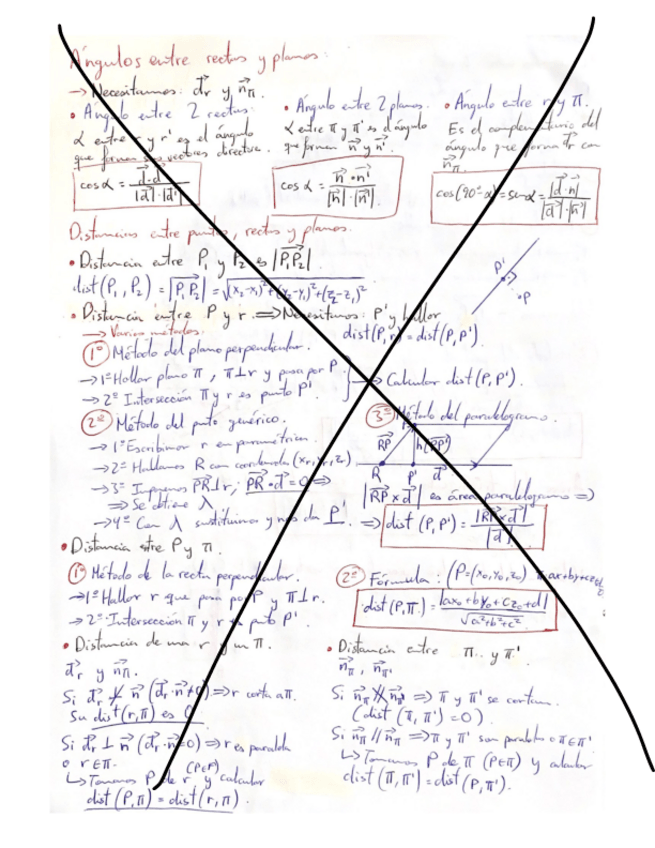 Ángulos entre rectas y planos:
→ Necesitamos: d⃗r y n⃗π.
• Ángulo entre 2 rectas:
α entre r y r' es el ángulo
que forman sus vectores directores.
cos α = d⃗·d⃗' / |d⃗|·|d⃗'|
• Ángulo entre 2 planos.
α entre π y π' es el ángulo
que forman n⃗ y n⃗'.
cos α = n⃗·n⃗' / |n⃗|·|n⃗'|
• Ángulo entre r y π.
Es el complementario del
ángulo que forma d⃗r con
n⃗π.
cos(90º-α) = sen α = |d⃗·n⃗| / |d⃗|·|n⃗|
Distancias entre puntos, rectas y planos.
• Distancia entre P₁ y P₂ es |P₁P₂|.
dist(P₁, P₂) = |P₁P₂| = √(x₂-x₁)²+(y₂-y₁)²+(z₂-z₁)²
P'
P
• Distancia entre P y r. ⇒ Necesitamos: P' y hallar
dist(P,r) = dist(P,P').
→ Varios métodos.
1º Método del plano perpendicular.
→ 1º Hallar plano π, π⊥r y pasa por P
→ 2º Intersección π y r es punto P'
→ Calcular dist(P,P').
2º Método del punto genérico.
→ 1º Escribimos r en paramétrica.
→ 2º Hallamos R con coordenadas (xr, yr, zr)
→ 3º Imponemos PR⊥r, PR·d⃗=0 ⇒
⇒ Se obtiene λ
→ 4º Con λ sustituimos y nos da P'.
3º Método del paralelogramo.
RP h(PP')
R P' d⃗
|RP × d⃗| es área paralelogramo ⇒
⇒ dist(P,P') = |RP × d⃗| / |d⃗|
• Distancia entre P y π.
1º Método de la recta perpendicular.
→ 1º Hallar r que pasa por P y π⊥r.
→ 2º Intersección π y r es punto P'
2º Fórmula: (P=(x₀,y₀,z₀) π=ax+by+cz+d
dist(P,π) = |ax₀+by₀+cz₀+d| / √a²+b²+c²
• Distancia de una r y un π.
d⃗r y n⃗π.
Si d⃗r ⊥̸ n⃗ (d⃗r·n⃗≠0) ⇒ r corta a π.
Su dist(r,π) es 0
Si d⃗r ⊥ n⃗ (d⃗r·n⃗=0) ⇒ r es paralela
o r∈π.
↳ Tomamos P de r (P∈r) y calcular
dist(P,π) = dist(r,π).
• Distancia entre π y π'
n⃗π, n⃗π'
Si n⃗π ∦ n⃗π' ⇒ π y π' se cortan.
(dist(π,π')=0).
Si n⃗π // n⃗π' ⇒ π y π' son paralelos o π∈π'
↳ Tomamos P de π (P∈π) y calcular
dist(π,π') = dist(P,π').